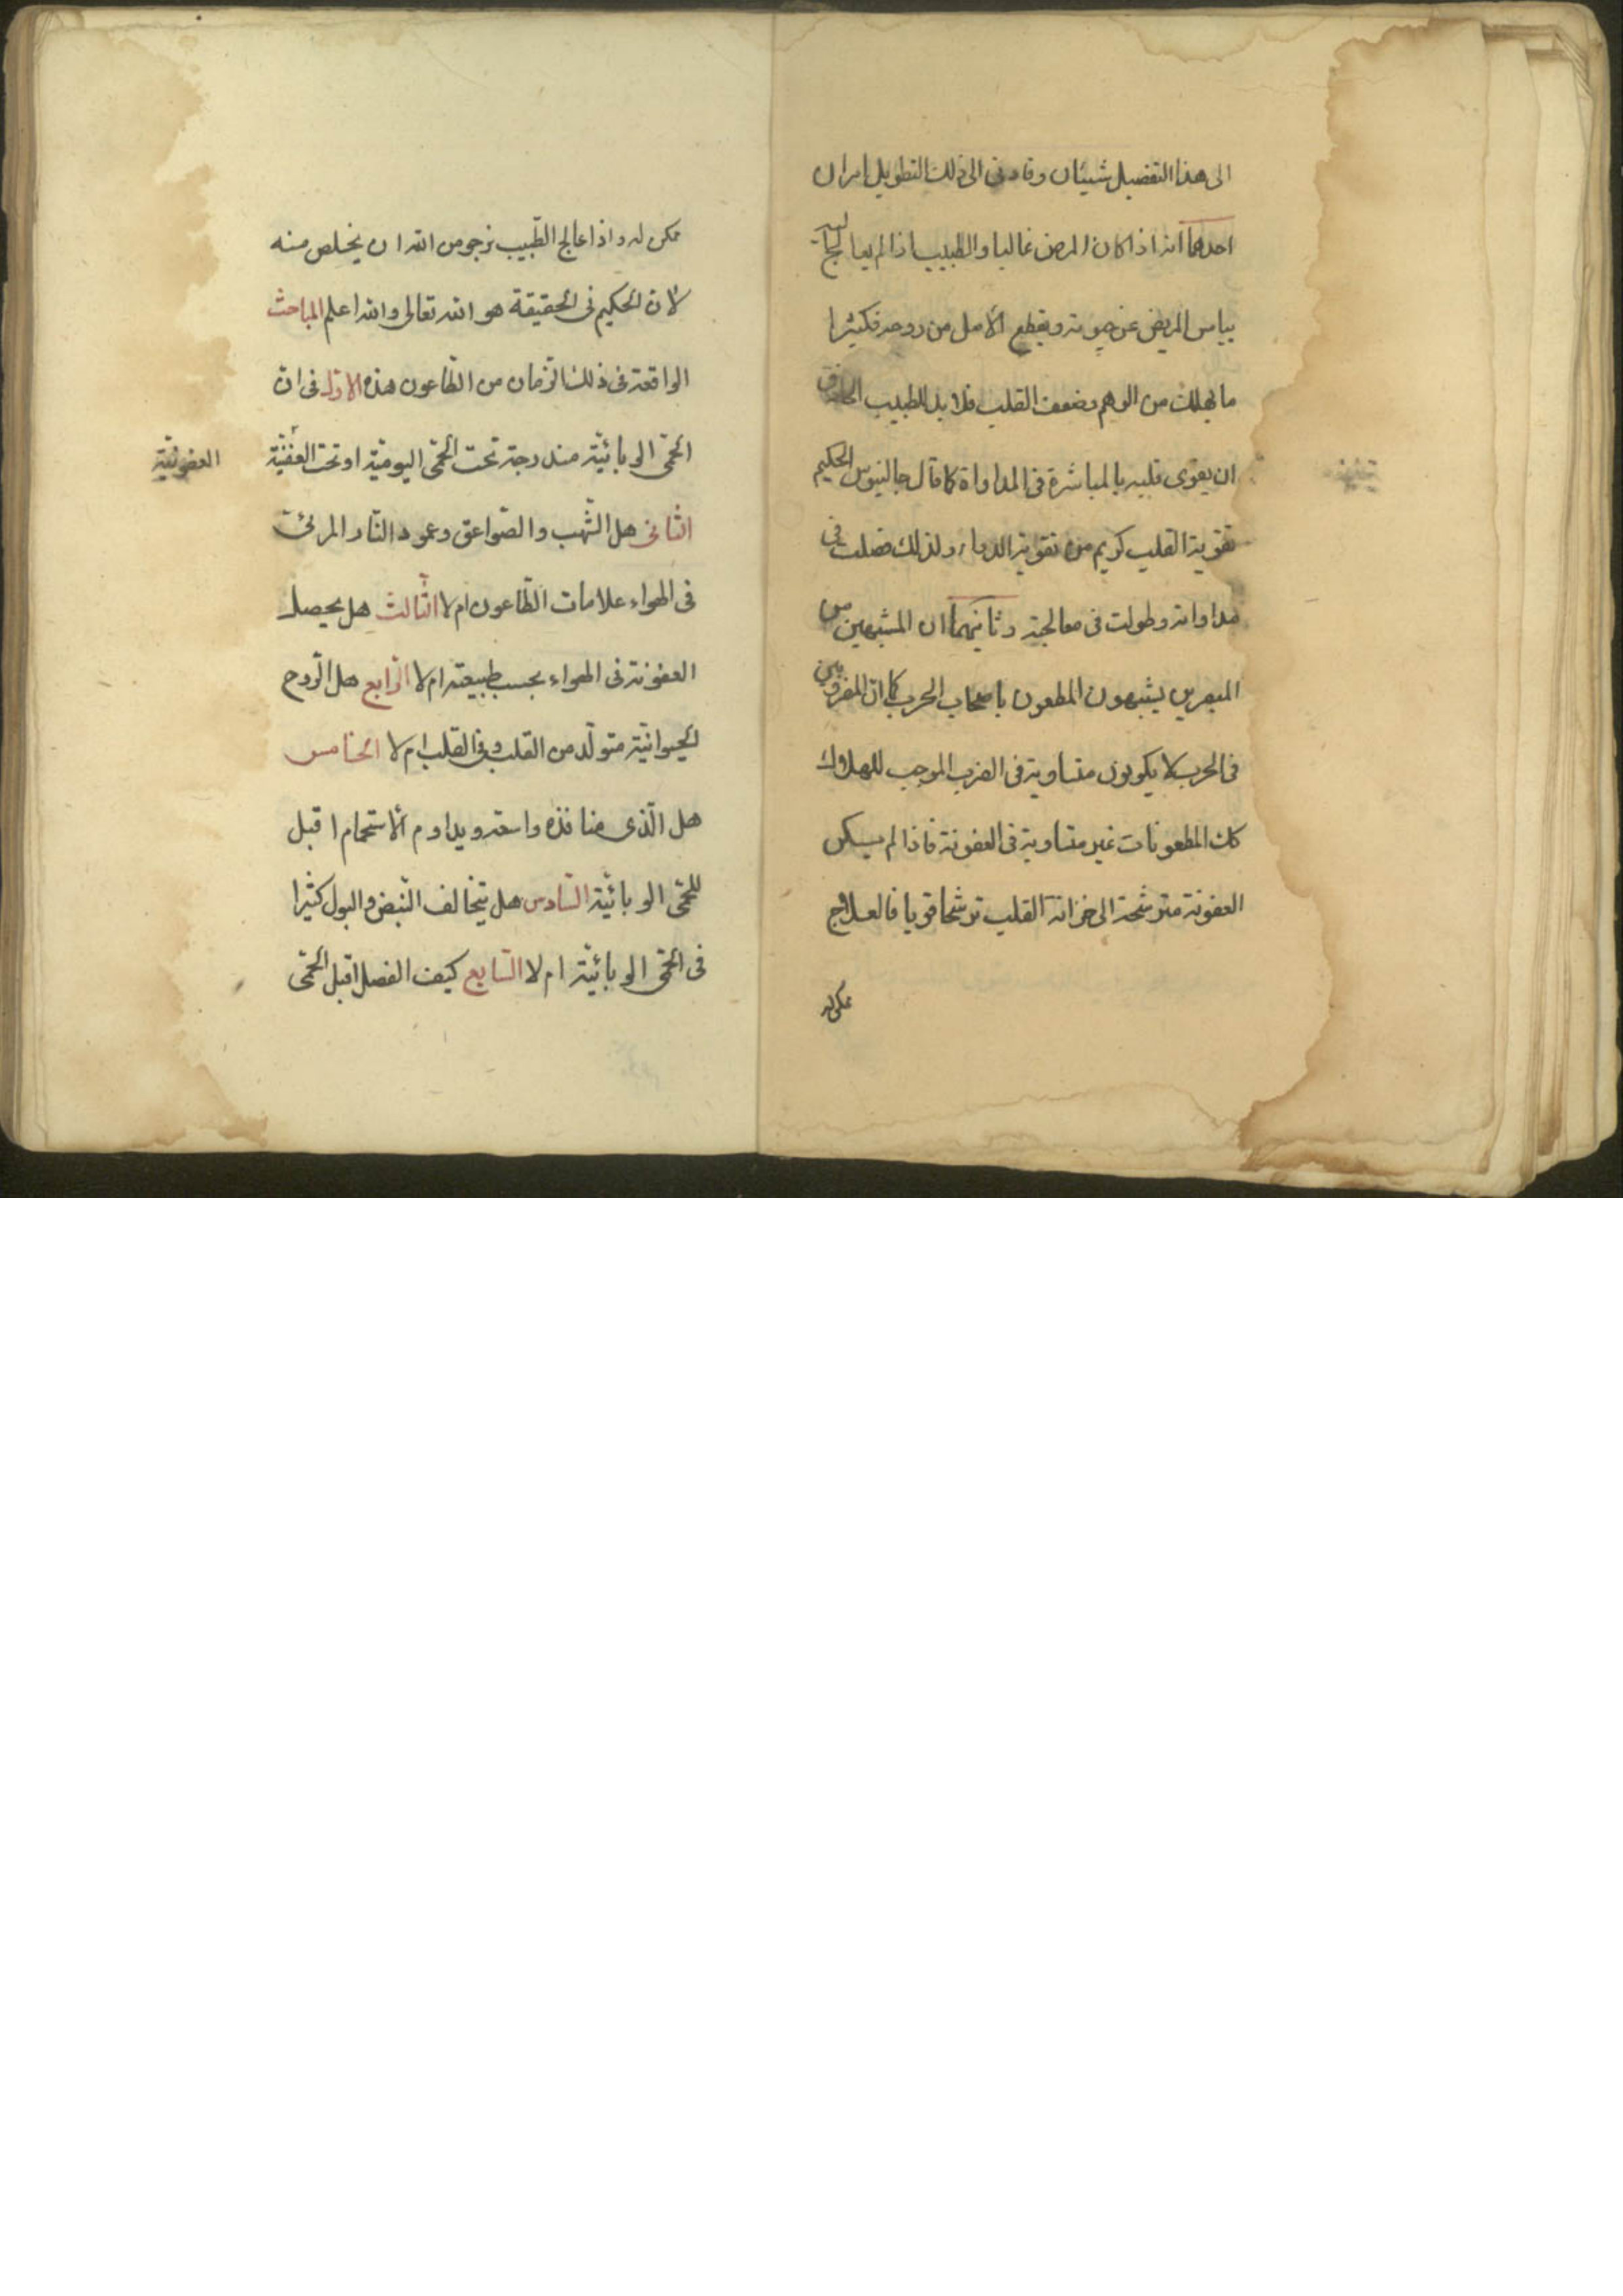 الى هذا التفضيل شيئان وقادنى الى ذلك التطويل امران
احدهما انه اذا كان المرض غالبا والطبيب اذا لم يعالج
يياس المريض عن حيوته ويقطع الأمل من روحه فكثيرا
ما يهلك من الوهم وضعف القلب فلا بد للطبيب الحاذق
ان يقوى قلبه بالمباشرة فى المداواة كما قال جالينوس الحكيم
تقوية القلب كريم من تقوية الدواء ولذلك فصلت فى
مداواته وطولت فى معالجته وثانيهما ان المشبهين من
المبصرين يشبهون المطعون باصحاب الحرب كما ان المضروبين
فى الحرب لا يكونون متساوية فى الضرب الموجب للهلاك
كك المطعونات غير متساوية فى العفونة فاذا لم يكن
العفونة مترشحة الى خزانة القلب ترشحا قويا فالعلاج
ممكن له
ممكن له واذا عالج الطّبيب نرجو من الله ان يخلص منه
لأن الحكيم فى الحقيقة هو الله تعالى والله اعلم المباحث
الواقعة فى ذلك الزمان من الطّاعون هذه الاوّل فى انّ
الحمّى الوبائيّة مندرجة تحت الحمّى اليوميّة او تحت العفنيّة
العفونيّة
الثّانى هل الشّهب والصّواعق وعمود النّار المرئى
فى الهواء علامات الطّاعون ام لا الثّالث هل يحصل
العفونة فى الهواء بحسب طبيعته ام لا الرّابع هل الرّوح
الحيوانيّة متولّد من القلب وفى القلب ام لا الخامس
هل الّذى منافذه واسعة ويداوم الأستحمام اقبل
للحمّى الوبائيّة السّادس هل يتخالف النّبض والبول كثيرا
فى الحمّى الوبائيّة ام لا السّابع كيف الفصل اقبل الحمّى